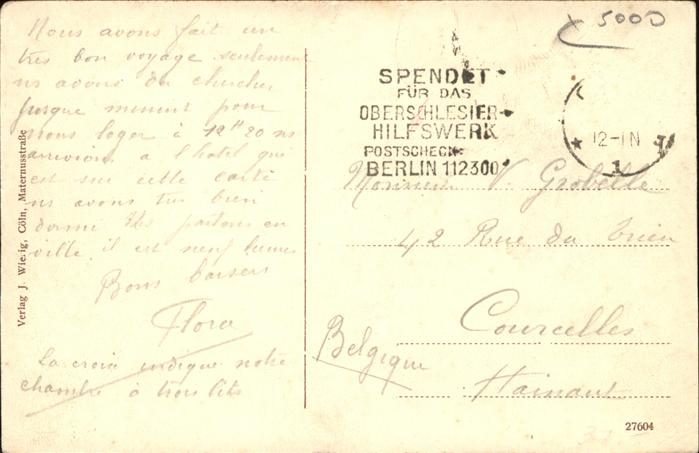 Nous avons fait un
très bon voyage seulement
ns avons dû chercher
jusque minuit pour
nous loger à 12H 20 ns
arrivions à l'hotel qui
est sur cette carte
ns avons très bien
dormi Ns partons en
ville, il est neuf heures
Bons baisers
Flora
La croix indique notre
chambre à trois lits
Verlag J. Wiesig, Cöln, Maternusstraße
5000
SPENDET
FÜR DAS
OBERSCHLESIER-
HILFSWERK
POSTSCHECK:
BERLIN 112300
12-1N
1
Monsieur V. Grobelle
42 Rue du Trieu
Courcelles
Hainaut
Belgique
27604